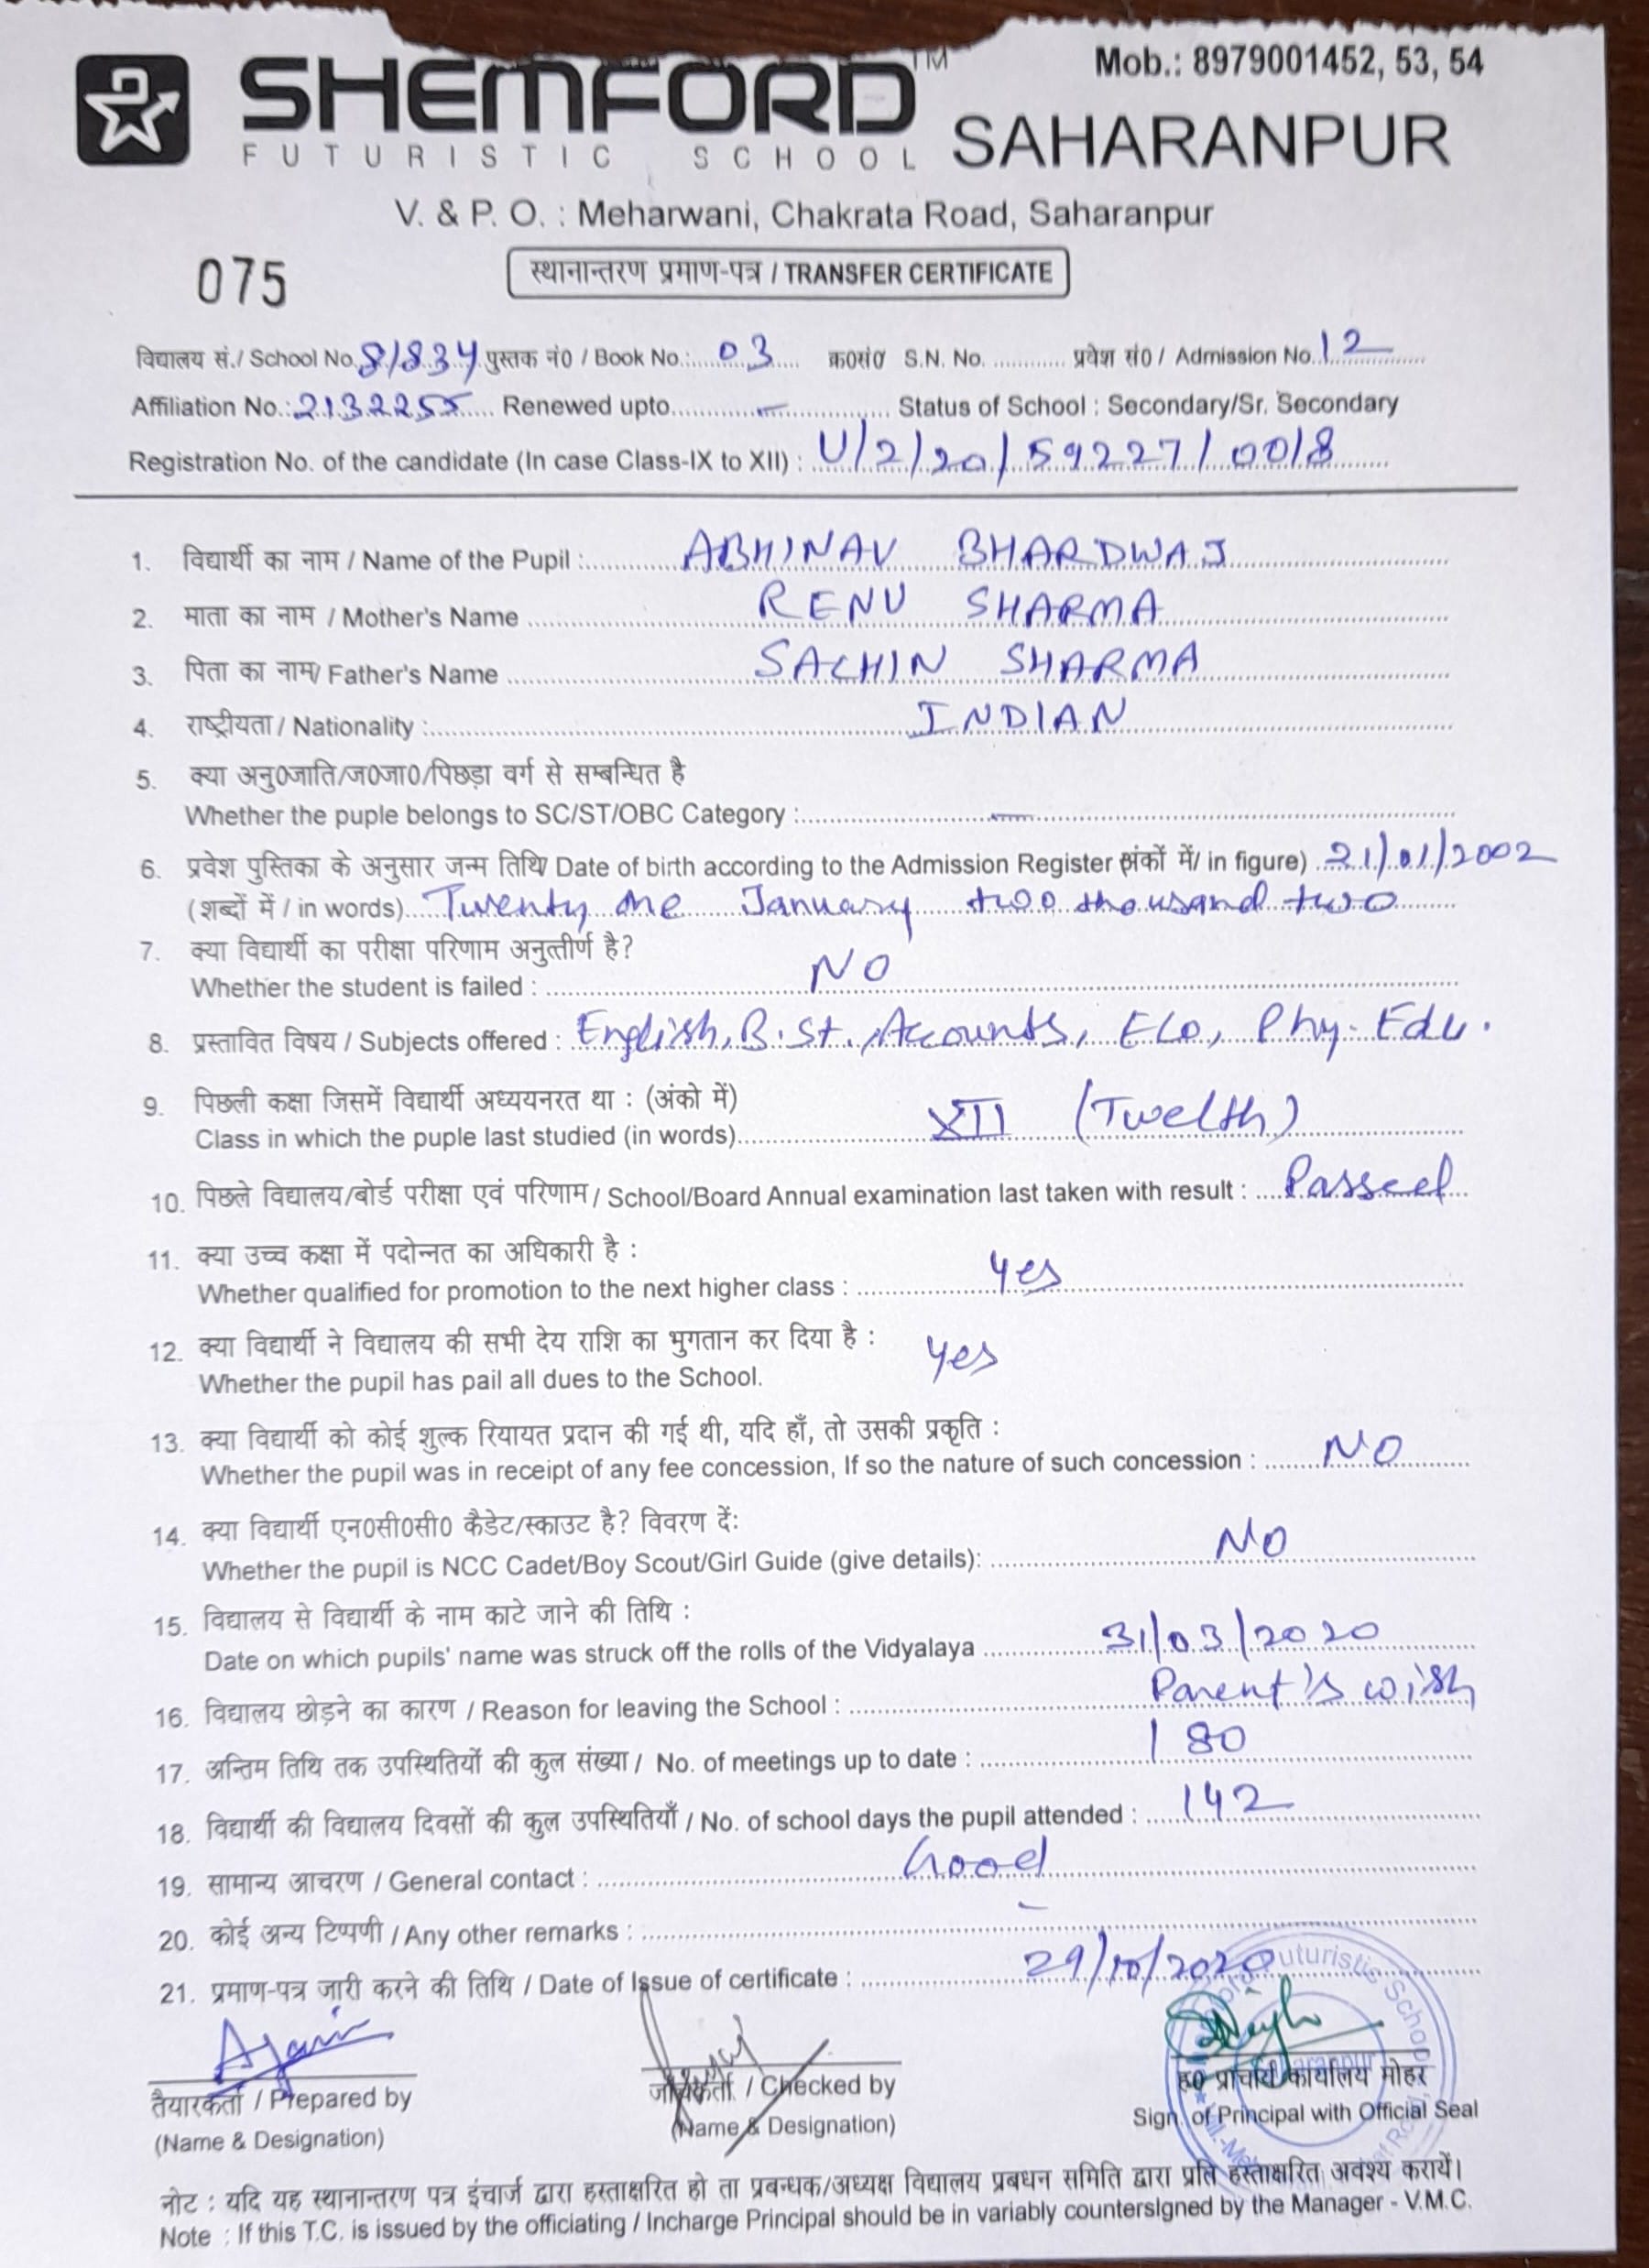 SHEMFORD TM
FUTURISTIC SCHOOL
Mob.: 8979001452, 53, 54
SAHARANPUR
V. & P. O. : Meharwani, Chakrata Road, Saharanpur
075
स्थानान्तरण प्रमाण-पत्र / TRANSFER CERTIFICATE
विद्यालय सं./ School No. 81834 पुस्तक नं0 / Book No.: 03 क्र0सं0 S.N. No. प्रवेश सं0 / Admission No. 12
Affiliation No.: 2132255 Renewed upto - Status of School : Secondary/Sr. Secondary
Registration No. of the candidate (In case Class-IX to XII) : U/2/20/59227/0018
1. विद्यार्थी का नाम / Name of the Pupil : ABHINAV BHARDWAJ
2. माता का नाम / Mother's Name RENU SHARMA
3. पिता का नाम/ Father's Name SACHIN SHARMA
4. राष्ट्रीयता / Nationality : INDIAN
5. क्या अनु0जाति/ज0जा0/पिछड़ा वर्ग से सम्बन्धित है
Whether the puple belongs to SC/ST/OBC Category : —
6. प्रवेश पुस्तिका के अनुसार जन्म तिथि/ Date of birth according to the Admission Register (अंकों में/ in figure) 21/01/2002
(शब्दों में / in words) Twenty one January two thousand two
7. क्या विद्यार्थी का परीक्षा परिणाम अनुत्तीर्ण है?
Whether the student is failed : NO
8. प्रस्तावित विषय / Subjects offered : English, B.St., Accounts, Eco, Phy. Edu.
9. पिछली कक्षा जिसमें विद्यार्थी अध्ययनरत था : (अंको में)
Class in which the puple last studied (in words) XII (Twelth)
10. पिछले विद्यालय/बोर्ड परीक्षा एवं परिणाम / School/Board Annual examination last taken with result : Passed
11. क्या उच्च कक्षा में पदोन्नत का अधिकारी है :
Whether qualified for promotion to the next higher class : Yes
12. क्या विद्यार्थी ने विद्यालय की सभी देय राशि का भुगतान कर दिया है : Yes
Whether the pupil has pail all dues to the School.
13. क्या विद्यार्थी को कोई शुल्क रियायत प्रदान की गई थी, यदि हाँ, तो उसकी प्रकृति :
Whether the pupil was in receipt of any fee concession, If so the nature of such concession : NO
14. क्या विद्यार्थी एन0सी0सी0 कैडेट/स्काउट है? विवरण दें:
Whether the pupil is NCC Cadet/Boy Scout/Girl Guide (give details): NO
15. विद्यालय से विद्यार्थी के नाम काटे जाने की तिथि :
Date on which pupils' name was struck off the rolls of the Vidyalaya 31/03/2020
16. विद्यालय छोड़ने का कारण / Reason for leaving the School : Parent's wish
17. अन्तिम तिथि तक उपस्थितियों की कुल संख्या / No. of meetings up to date : 180
18. विद्यार्थी की विद्यालय दिवसों की कुल उपस्थितियाँ / No. of school days the pupil attended : 142
19. सामान्य आचरण / General contact : Good
20. कोई अन्य टिप्पणी / Any other remarks : -
21. प्रमाण-पत्र जारी करने की तिथि / Date of Issue of certificate : 29/10/2020
Futuristic School
Saharanpur
तैयारकर्ता / Prepared by
(Name & Designation)
जाँचकर्ता / Checked by
(Name & Designation)
ह0 प्राचार्य कार्यालय मोहर
Sign. of Principal with Official Seal
नोट : यदि यह स्थानान्तरण पत्र इंचार्ज द्वारा हस्ताक्षरित हो ता प्रबन्धक/अध्यक्ष विद्यालय प्रबधन समिति द्वारा प्रति हस्ताक्षरित अवश्य करायें।
Note : If this T.C. is issued by the officiating / Incharge Principal should be in variably countersigned by the Manager - V.M.C.